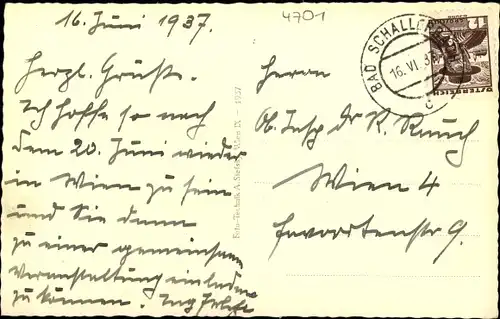 16. Juni 1937.
Herzl. Grüße.
Ich hoffe so nach
dem 20. Juni wieder
in Wien zu sein
und Sie dann
zu einer gemeinsamen
Veranstaltung einladen
zu können. Ing
4701
Foto-Technik A. Wien IX. - 1937
BAD SCHALLERBACH
16. VI. 37
c
ÖSTERREICH
12
Herrn
Ob. Insp Dr. R. Rauch
Wien 4
Favoritenstr 9.